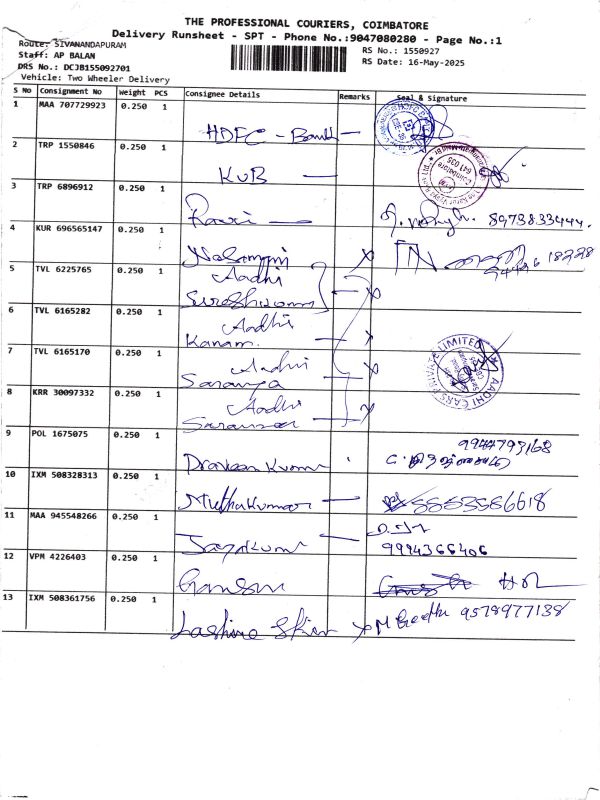 THE PROFESSIONAL COURIERS, COIMBATORE
Delivery Runsheet - SPT - Phone No.:9047080280 - Page No.:1
Route: SIVANANDAPURAM
RS No.: 1550927
Staff: AP BALAN
RS Date: 16-May-2025
DRS No.: DCJB155092701
Vehicle: Two Wheeler Delivery
S No Consignment No Weight PCS Consignee Details Remarks Seal & Signature
1 MAA 707729923 0.250 1
HDFC - Bank
2 TRP 1550846 0.250 1
KVB
641 035
3 TRP 6896912 0.250 1
Ravi 8973833444
4 KUR 696565147 0.250 1
5 TVL 6225765 0.250 1
Aadhi
6 TVL 6165282 0.250 1
Aadhi
Kanam
7 TVL 6165170 0.250 1
AADHI CARS PRIVATE LIMITED
Aadhi
Saranya
8 KRR 30097332 0.250 1
Aadhi
9 POL 1675075 0.250 1
9944793168
Praveen Kumar
10 IXM 508328313 0.250 1
Muthukumar
11 MAA 945548266 0.250 1
Jayakumar
9994366406
12 VPM 4226403 0.250 1
Ganesh
13 IXM 508361756 0.250 1
M Geetha 9578977138